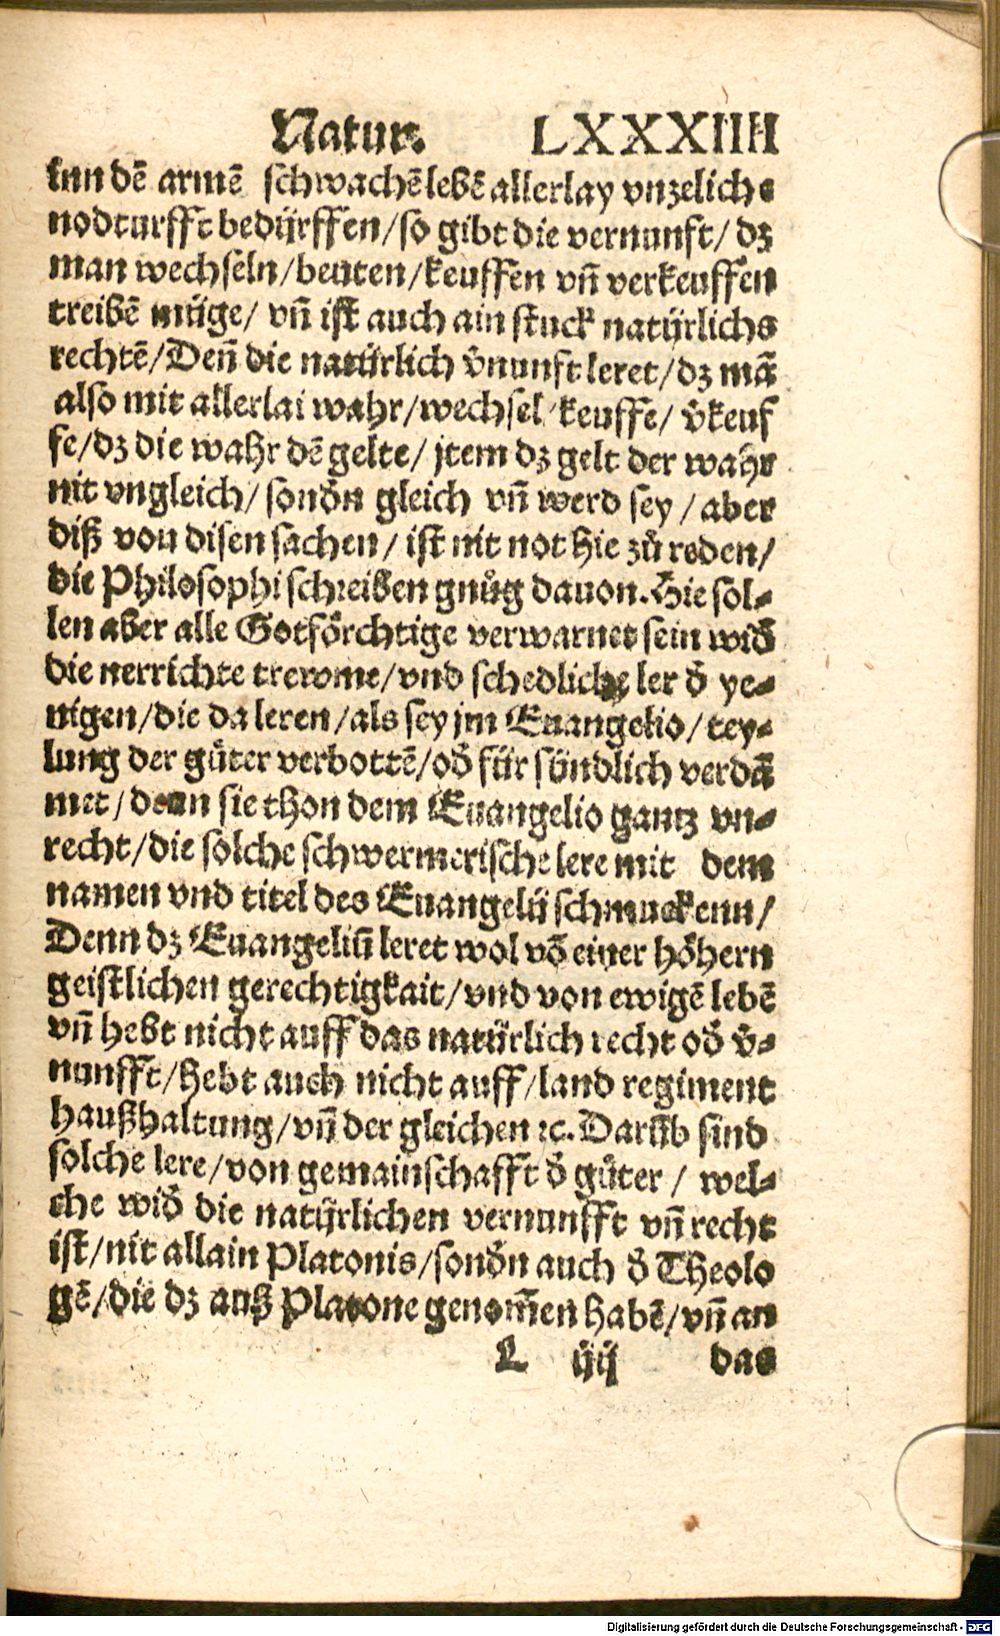 Natur. LXXXIIII
lnn dē armē schwachē lebē allerlay vnzelichs
nodturfft bedürffen/so gibt die vernunft/ dz
man wechseln/beuten/keuffen vñ verkeuffen
treibē müge/ vñ ist auch ain stuck natürlichs
rechtē/Deñ die natürlich v̄nunft leret/dz mā
also mit allerlai wahr/wechsel/keuffe/ v̄keuf
fe/dz die wahr dē gelte/ jtem dz gelt der wahr
nit vngleich/ sonđn gleich vñ werd sey/ aber
diß von disen sachen/ ist nit not hie zů reden/
die Philosophi schreiben gnůg dauon. Hie sol-
len aber alle Gotförchtige verwarnet sein widđ
die nerrichte trewme/vnd schedliche ler đ ye-
nigen/die da leren/als sey jm Euangelio/ tey-
lung der güter verbottē/ođ für sündlich verdā
met/denn sie thon dem Euangelio gantz vn-
recht/die solche schwermerische lere mit dem
namen vnd titel des Euangelij schmuckenn/
Denn dz Euangeliū leret wol vō einer höhern
geistlichen gerechtigkait/vnd von ewigē lebē
vñ hebt nicht auff das natürlich recht ođ v̄-
nunfft/hebt auch nicht auff/land regiment
haußhaltung/vñ der gleichen ꝛc. Darūb sind
solche lere/von gemainschafft đ güter/ wel-
che widđ die natürlichen vernunfft vñ recht
ist/nit allain Platonis/sonđn auch đ Theolo
gē/die dz auß Platone genom̄en habē/vñ an
L iij das
Digitalisierung gefördert durch die Deutsche Forschungsgemeinschaft - DFG